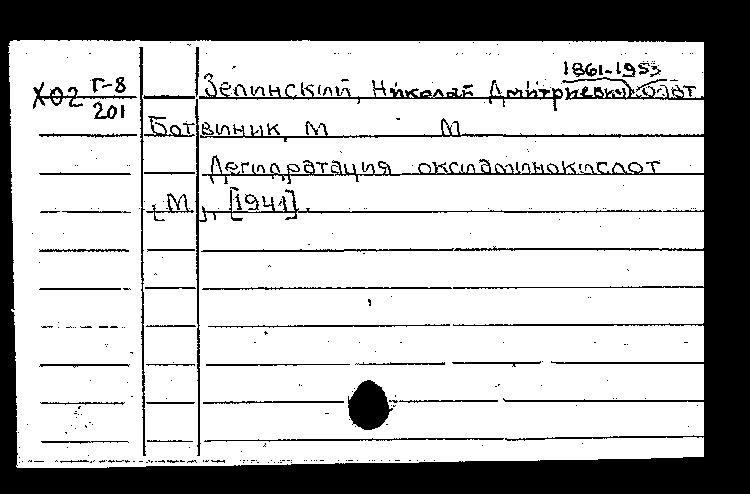 1861-1953
Х02 Г-8 Зелинский, Николай Дмитриевич, соавт.
201
Ботвиник, М М
Дегидратация оксиаминокислот
[М.], [1941].